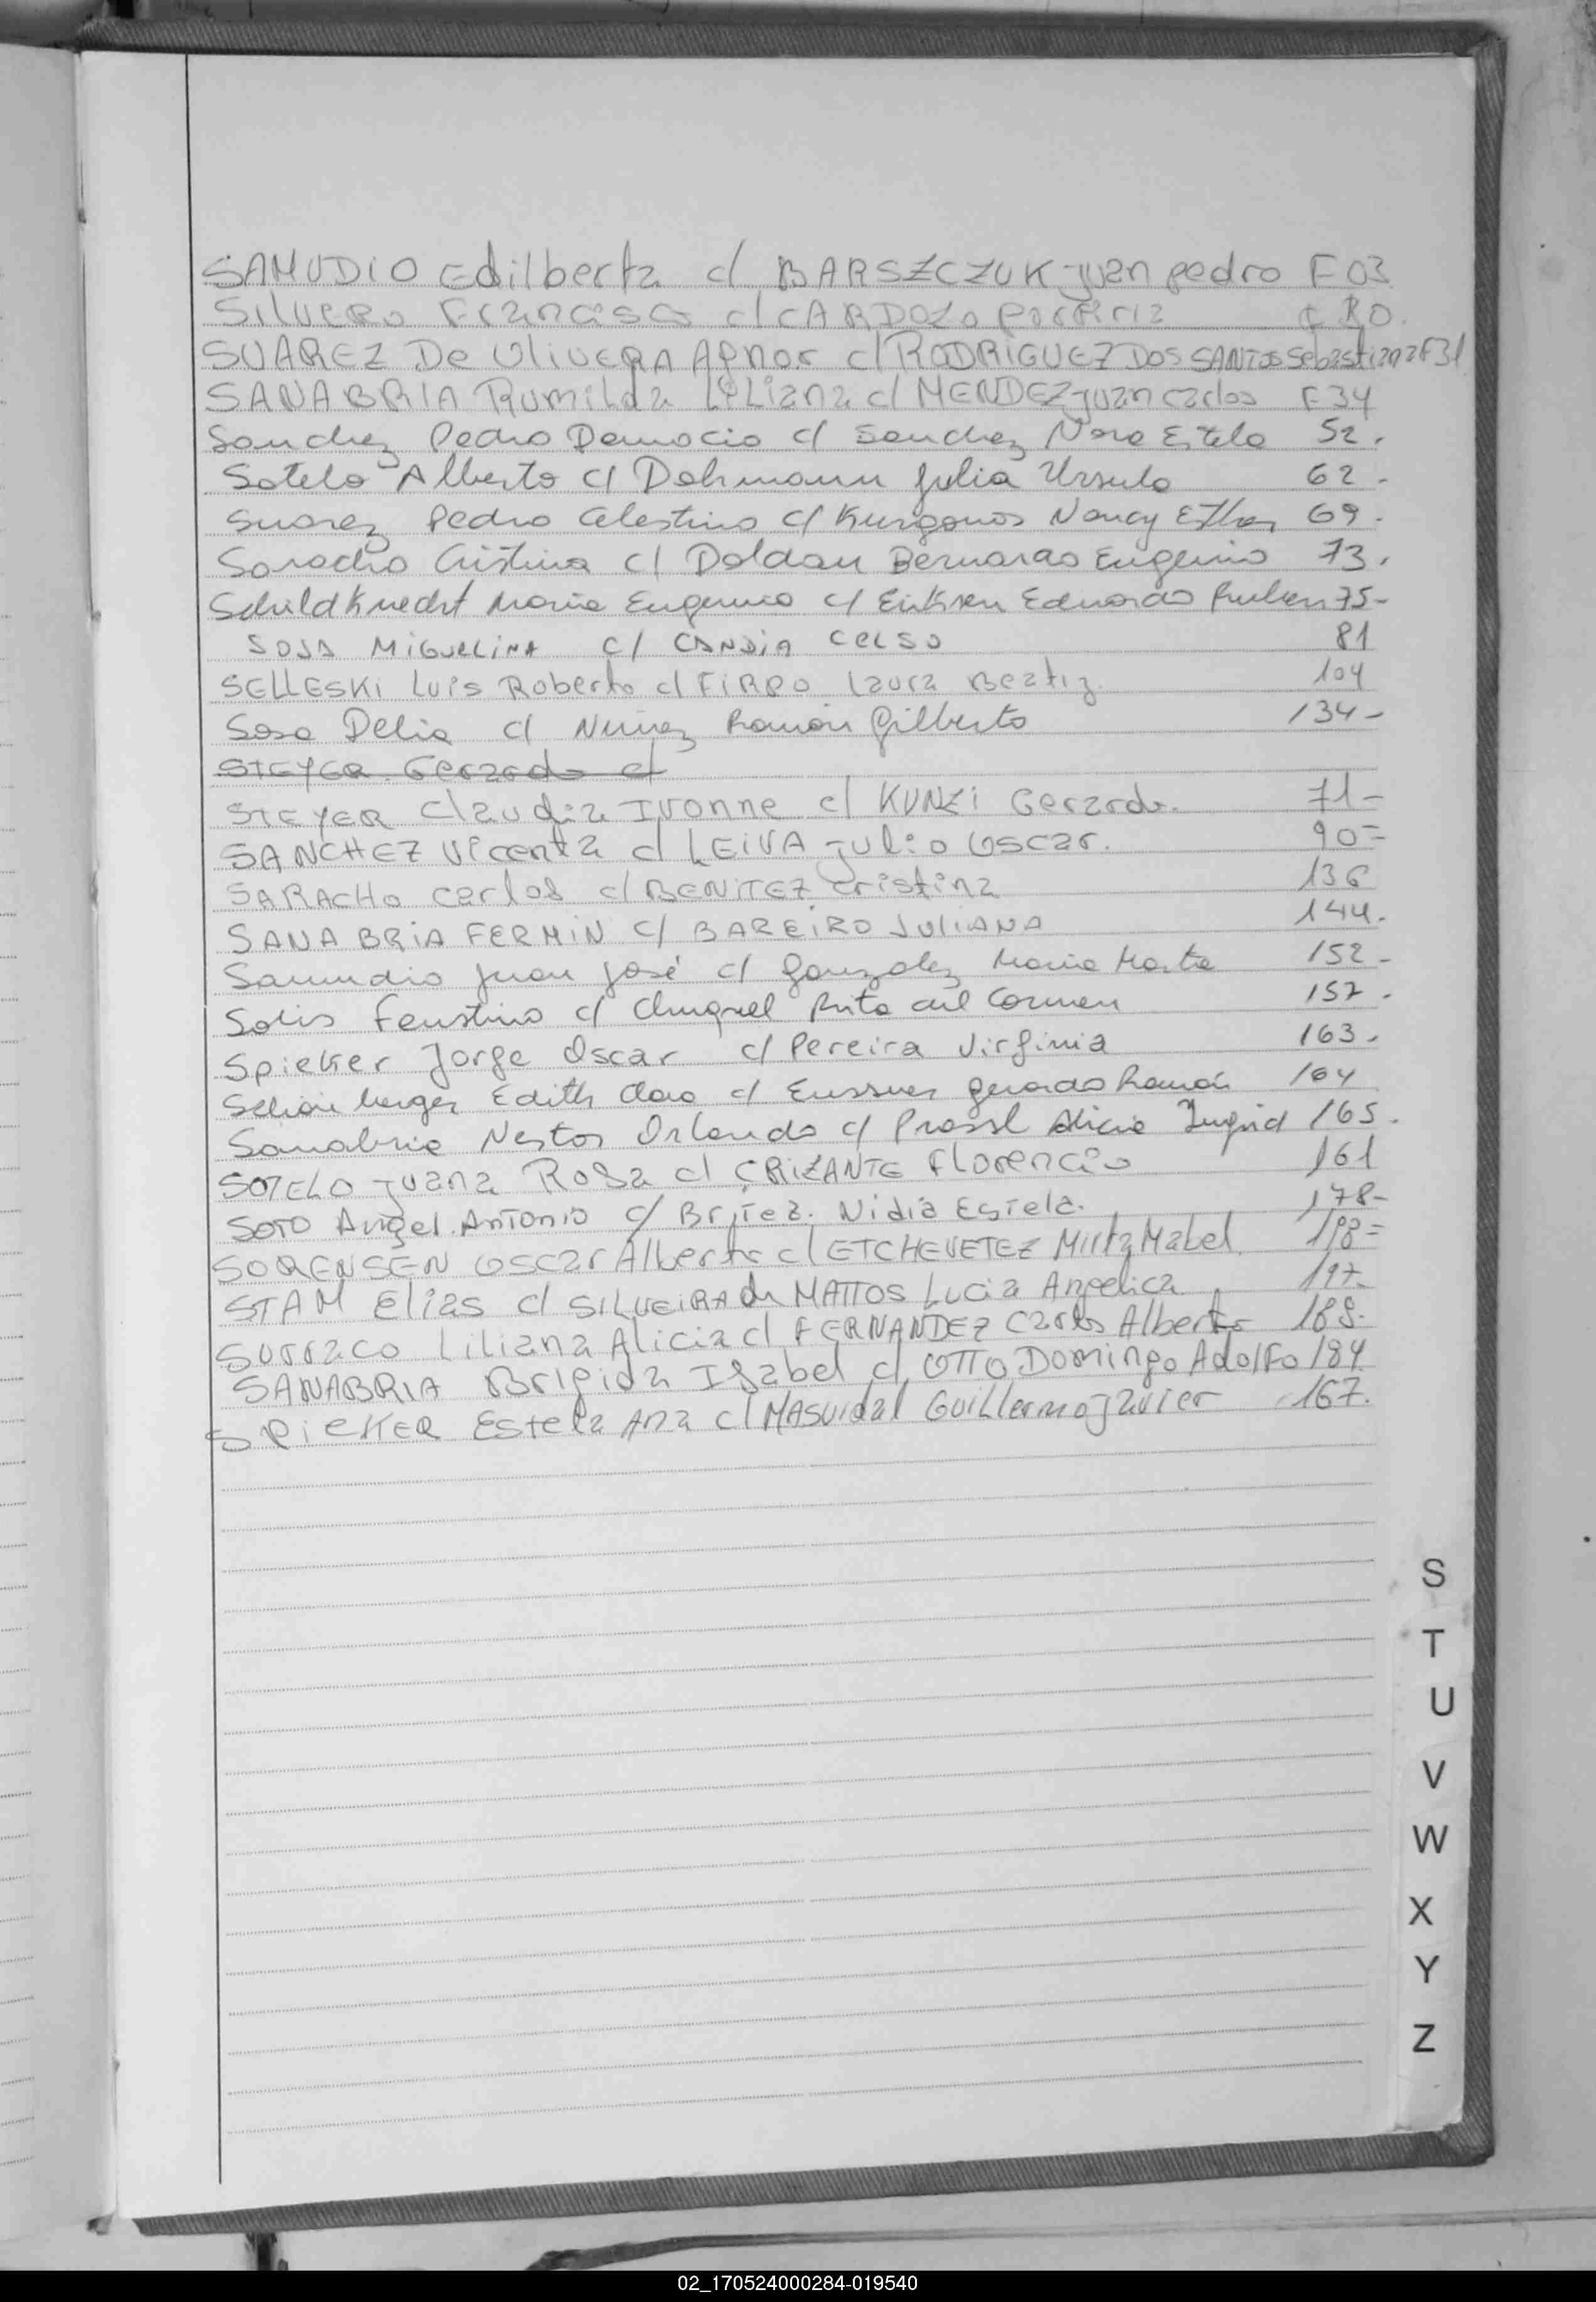 SAMUDIO Edilberta c/ BARSZCZUK Juan pedro F 03
SilveRo Francisco c/ CARDOZO Porfiria
SUAREZ De OliveRA Agnor c/ RODRIGUEZ Dos SANTOS Sebastiana F31
SANABRIA Rumilda Liliana c/ MENDEZ Juan carlos F 34
Sanchez Pedro Damacio c/ Sanchez Nora Estela 52.
Sotelo Alberto c/ Dohmann Julia Ursula 62-
Suarez Pedro Celestino c/ Kurganos Nancy Esther 69.
Saracho Cristina c/ Doldan Bernardo Eugenio 73.
Schildknecht Maria Eugenia c/ Eriksen Eduardo Ruben 75-
SOSA MiGuELiNA c/ CANDiA CELSO 81
SELLESKi Luis Roberto c/ FiRPO Laura Beatiz 104
Sosa Delia c/ Nuñez Ramón Gilberto 134-
STEYER Gerardo c/
STEYER Claudia Ivonne c/ KUNZi Gerardo. 71-
SANCHEZ Vicenta c/ LEIVA Julio Oscar. 90=
SARACHO Carlos c/ BENiTEZ Cristina 136
SANABRiA FERMiN c/ BAREiRO JULiANA 144.
Samudio Juan José c/ Gonzalez Maria Marta 152-
Solis Faustino c/ Chuquel Rita del Carmen 157.
Spieker Jorge Oscar c/ Pereira Virginia 163.
Edith Clara c/ Gerardo Ramón 164
Sanabria Nestor Orlando c/ Prassl Alicia Ingrid 165.
SOTELO Juana Rosa c/ CRIZANTE Florencio 161
SOTO Angel Antonio c/ Britez. Nidia Estela. 178-
SORENSEN Oscar Alberto c/ ETCHEVETEZ Mirta Mabel. 198=
STAM Elias c/ SILVEiRA da MATTOS Lucia Angelica 197.
Surraco Liliana Alicia c/ FERNANDEZ Carlos Alberto 188.
SANABRIA Brigida Isabel c/ OTTO Domingo Adolfo 184.
SPiEKER Estela Ana c/ MASVidal Guillermo Javier 167.
S
T
U
V
W
X
Y
Z
02_170524000284-019540